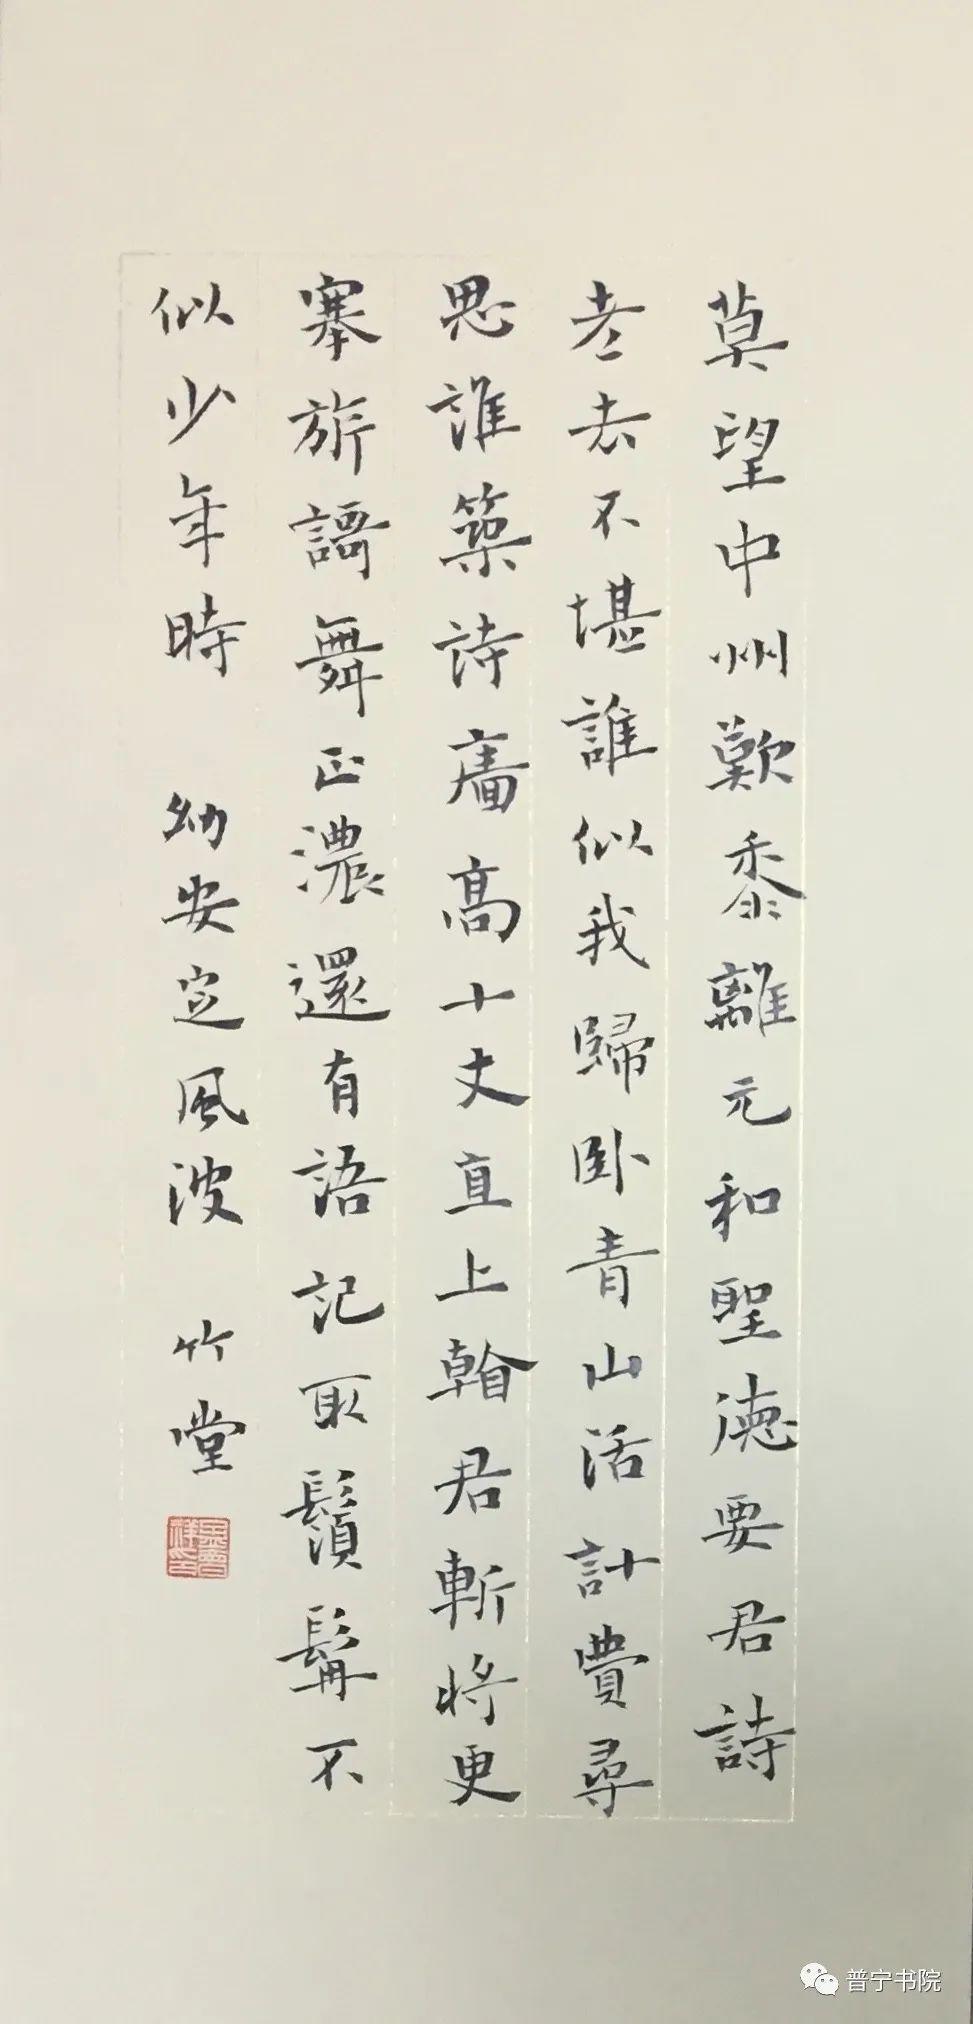 莫望中州歎黍離元和聖德要君詩
老去不堪誰似我歸卧青山活計費尋
思誰築詩牆高十丈直上看君斬將更
搴旂謌舞正濃還有語記取鬚髯不
似少年時 幼安定風波 竹堂
普宁书院